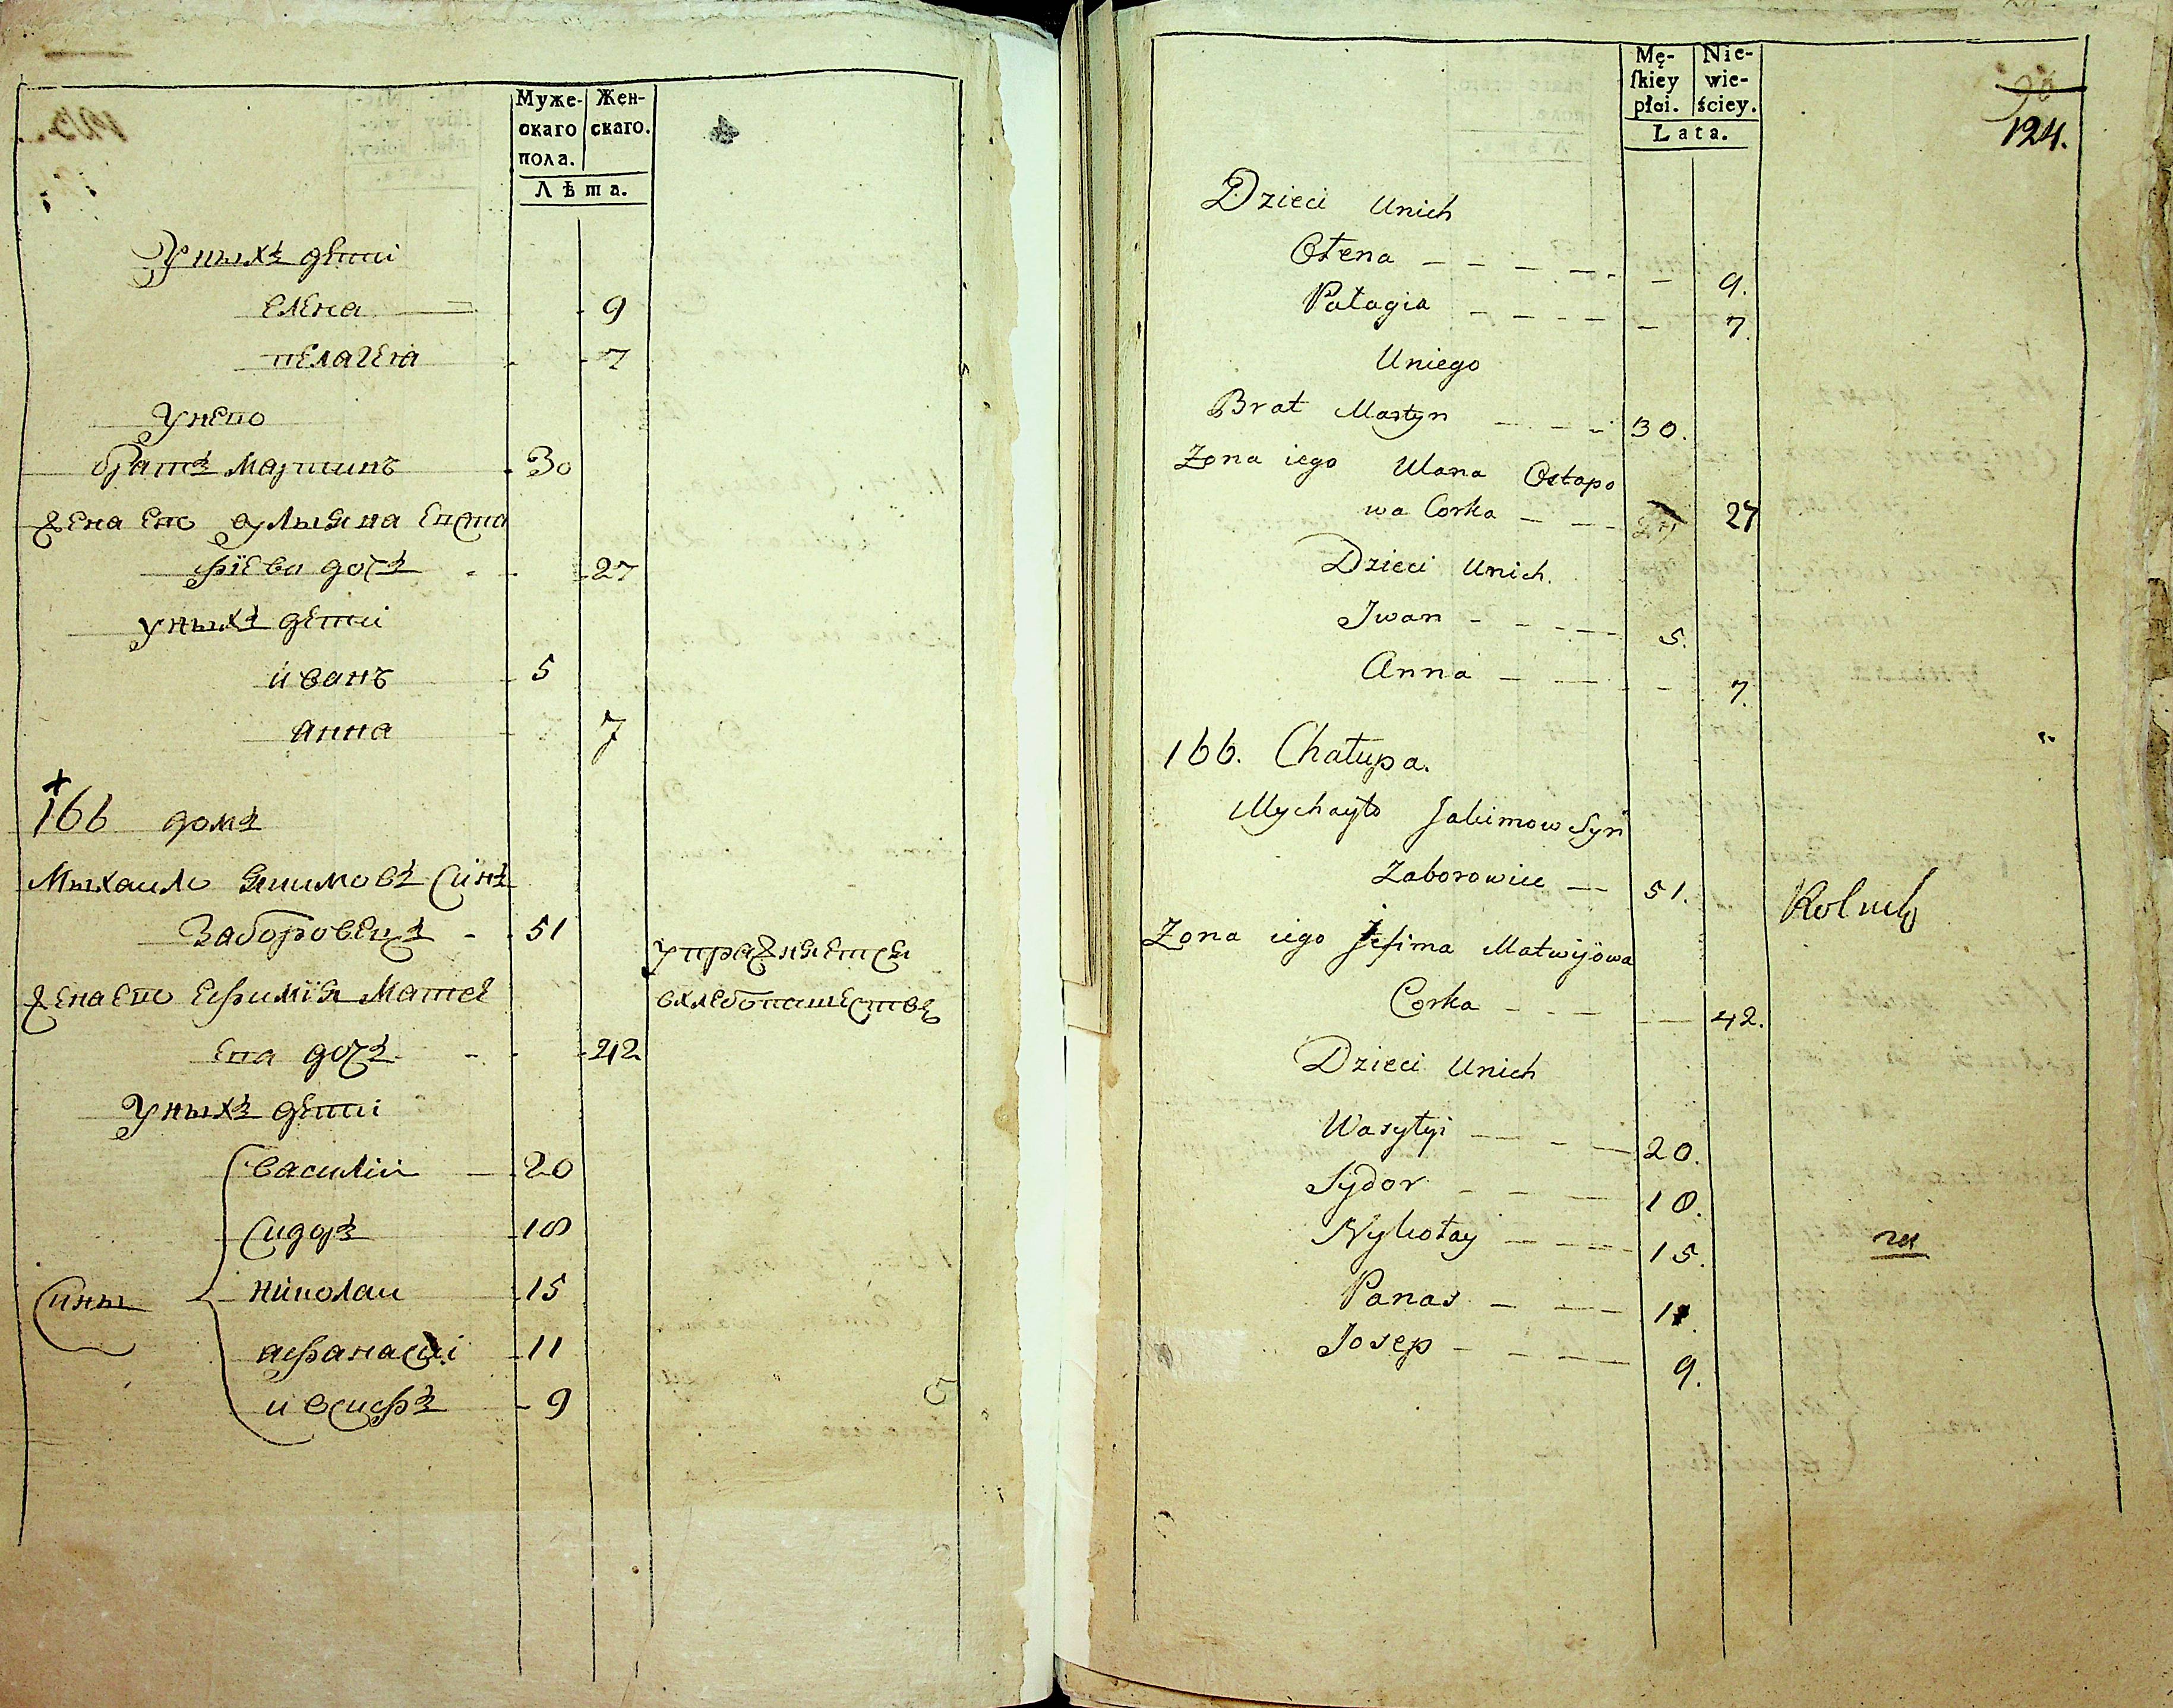 Муже- Жен-
скаго скаго.
пола.
Лѣта.
Уныхъ дети
елена 9
пелагея 7
Унего
братъ мартинъ 30
жена его ульяна Евста
фіева дочъ 27
уныхъ дети
иванъ 5
анна 7
166 домъ
Михаило якимовъ синъ
Заборовецъ 51
упражняется
вхлебопашествѣ
жена его ефимія Матве
ева дочъ 42
Уныхъ дети
Сины
василій 20
сидоръ 18
николаи 15
афанасиі 11
иосифъ 9
Mę- Nie-
ſkiey wie-
płci. ściey.
Lata.
124.
Dzieci Unich
Ołena 9.
Pałagia 7.
Uniego
Brat Martyn 30.
Zona iego Ulana Ostapo
wa Corka 27
Dzieci Unich.
Jwan 5.
Anna 7.
166. Chałupa.
Mychayło Jakimow Syn
Zaborowiec 51.
Rolnik
Zona iego Jefima Matwijowa
Corka 42.
Dzieci Unich
Wasylyi 20.
Sydor 18.
Nykołay 15.
Panas 11.
Josep 9.